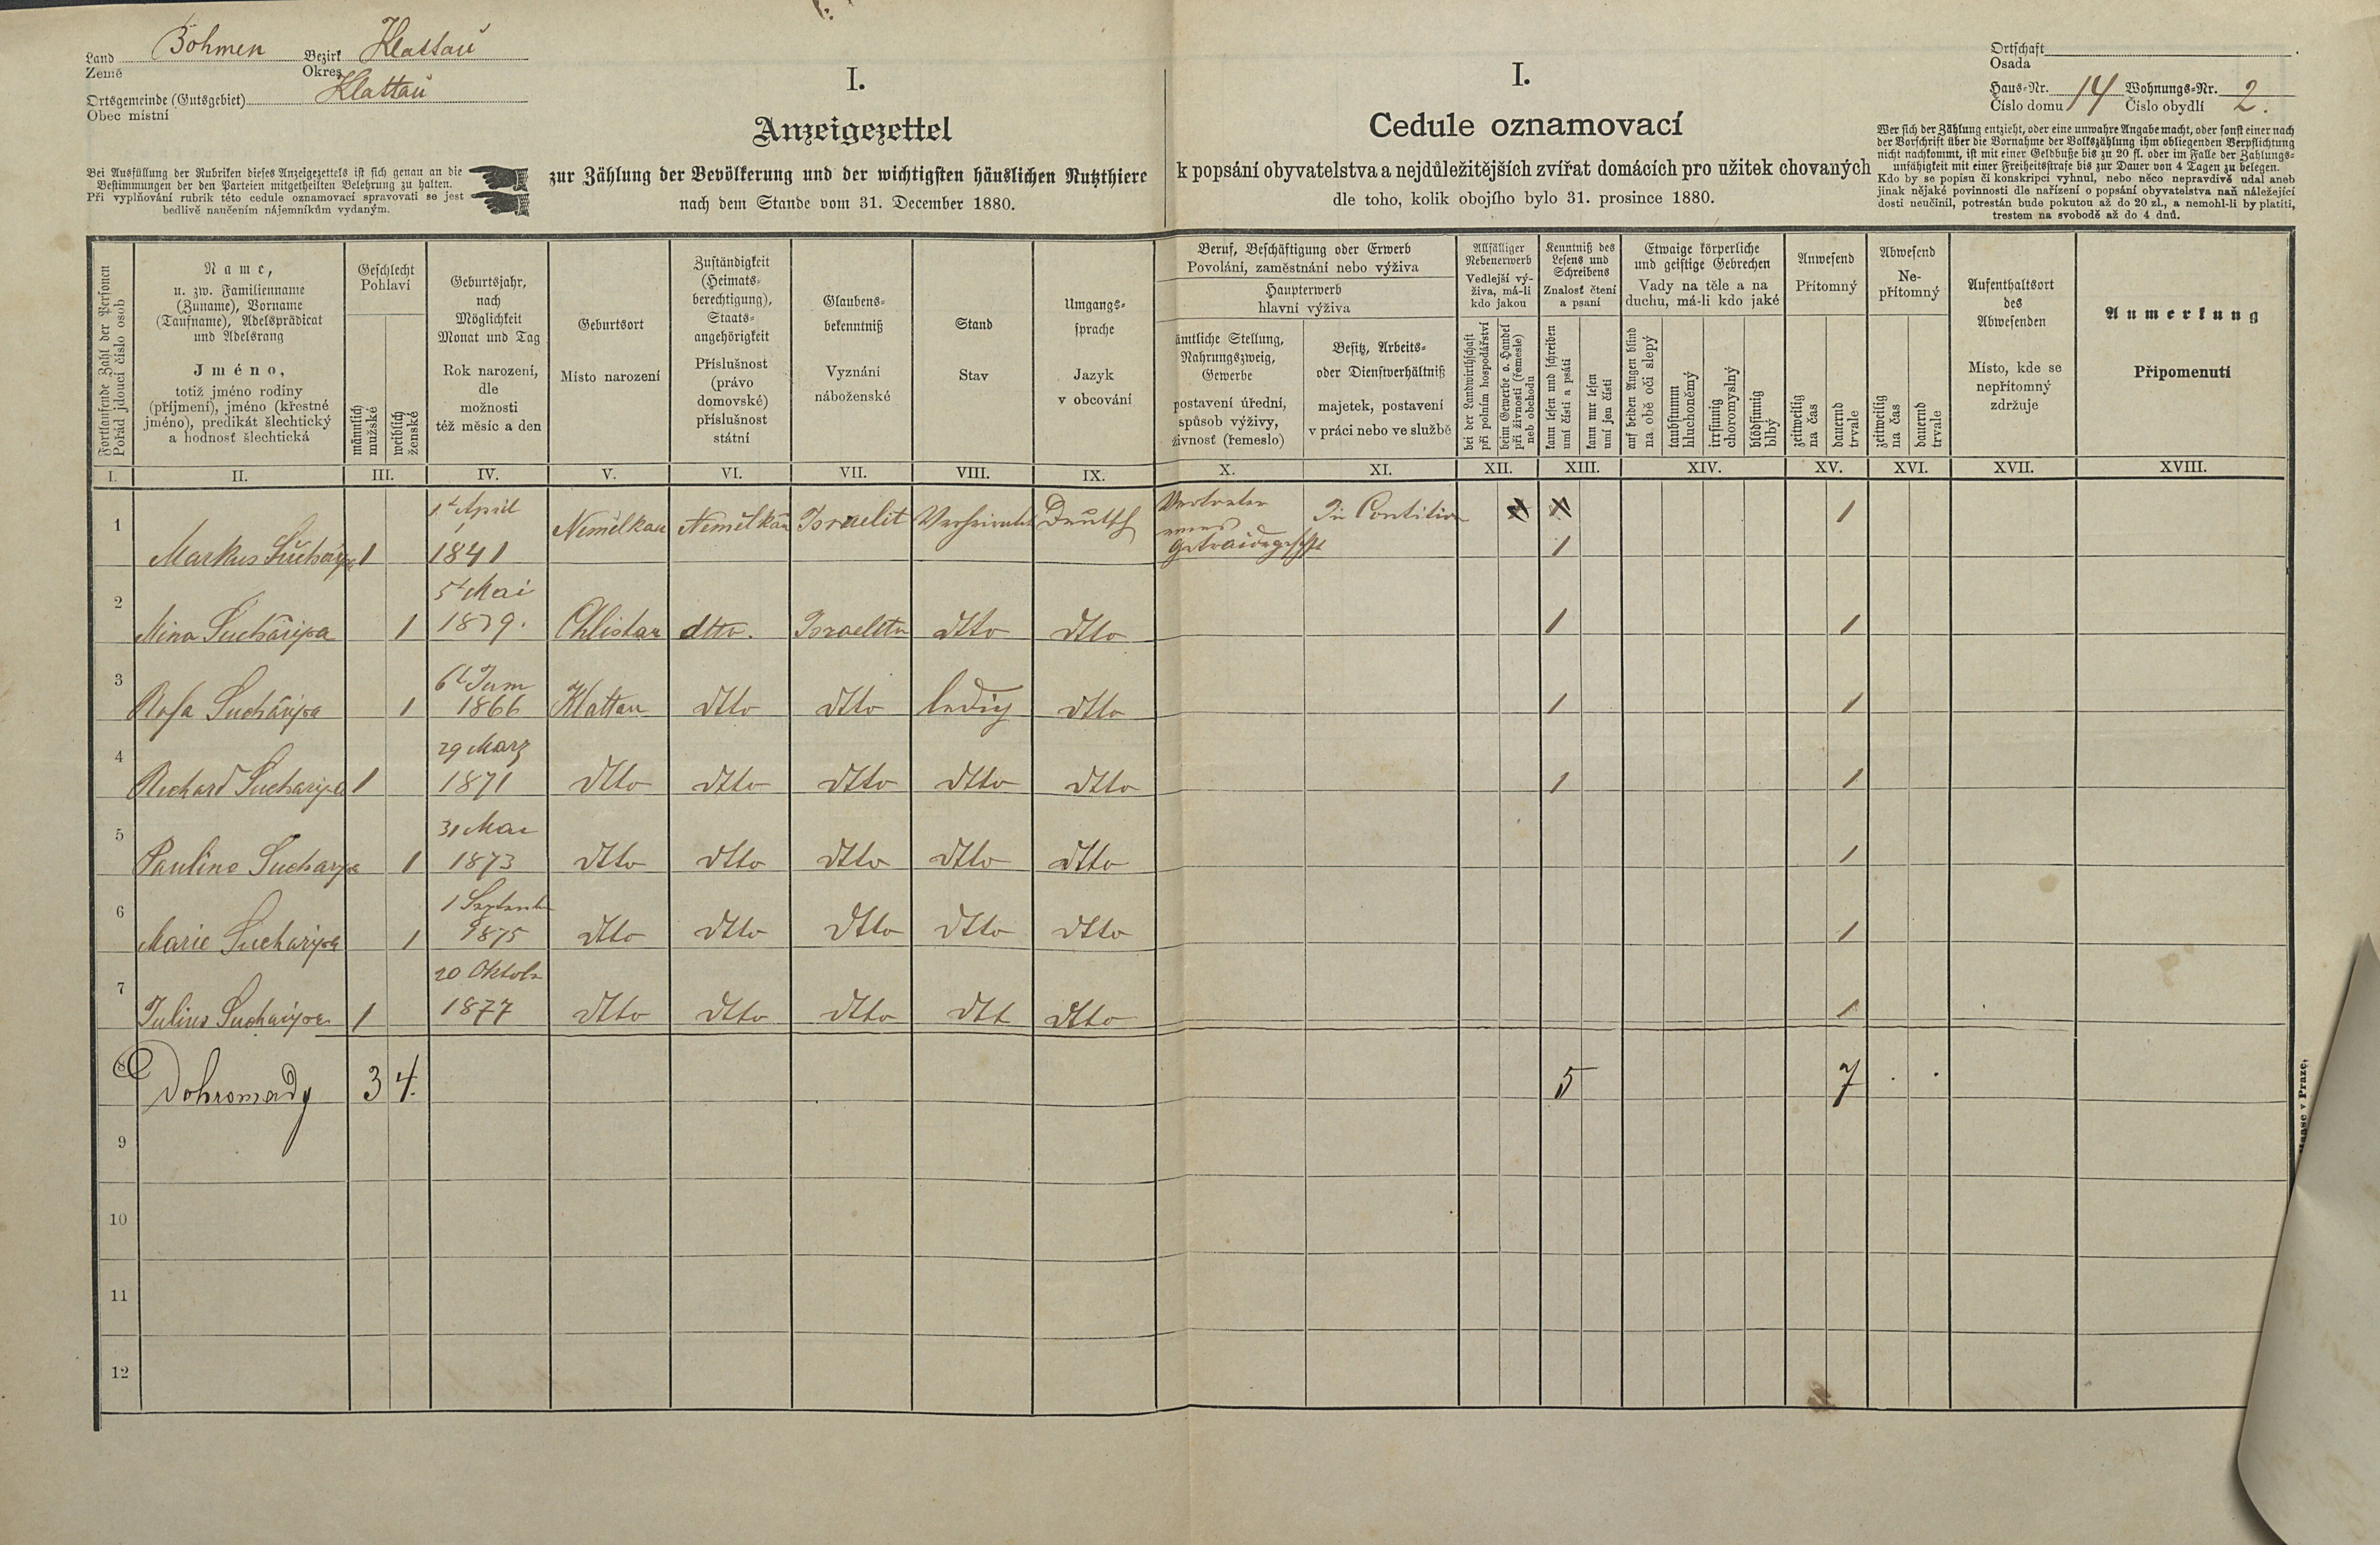 Land Böhmen Bezirk Klattau
Země Okres
Ortsgemeinde (Gutsgebiet) Klattau
Obec místní
Bei Ausfüllung der Rubriken dieses Anzeigezettels ist sich genau an die
Bestimmungen der den Parteien mitgetheilten Belehrung zu halten.
Při vyplňování rubrik této cedule oznamovací spravovati se jest
bedlivě naučením nájemníkům vydaným.
I.
Anzeigezettel
zur Zählung der Bevölkerung und der wichtigsten häuslichen Nutzthiere
nach dem Stande vom 31. December 1880.
I.
Cedule oznamovací
k popsání obyvatelstva a nejdůležitějších zvířat domácích pro užitek chovaných
dle toho, kolik obojího bylo 31. prosince 1880.
Ortschaft
Osada
Haus-Nr. 14 Wohnungs-Nr. 2.
Číslo domu Číslo obydlí
Wer sich der Zählung entzieht, oder eine unwahre Angabe macht, oder sonst einer nach
der Vorschrift über die Vornahme der Volkszählung ihm obliegenden Verpflichtung
nicht nachkommt, ist mit einer Geldbuße bis zu 20 fl. oder im Falle der Zahlungs-
unfähigkeit mit einer Freiheitsstrafe bis zur Dauer von 4 Tagen zu belegen.
Kdo by se popisu či konskripci vyhnul, nebo něco nepravdivě udal aneb
jinak nějaké povinnosti dle nařízení o popsání obyvatelstva naň náležející
dosti neučinil, potrestán bude pokutou až do 20 zl., a nemohl-li by platiti,
trestem na svobodě až do 4 dnů.
Fortlaufende Zahl der Personen
Pořád jdoucí číslo osob
Name,
u. zw. Familienname
(Zuname), Vorname
(Taufname), Adelsprädicat
und Adelsrang
Jméno,
totiž jméno rodiny
(příjmení), jméno (křestné
jméno), predikát šlechtický
a hodnosť šlechtická
Geschlecht
Pohlaví
männlich
mužské
weiblich
ženské
Geburtsjahr,
nach
Möglichkeit
Monat und Tag
Rok narození,
dle
možnosti
též měsíc a den
Geburtsort
Místo narození
Zuständigkeit
(Heimats-
berechtigung),
Staats-
angehörigkeit
Příslušnost
(právo
domovské)
příslušnost
státní
Glaubens-
bekenntniß
Vyznání
náboženské
Stand
Stav
Umgangs-
sprache
Jazyk
v obcování
Beruf, Beschäftigung oder Erwerb
Povolání, zaměstnání nebo výživa
Haupterwerb
hlavní výživa
ämtliche Stellung,
Nahrungszweig,
Gewerbe
postavení úřední,
spůsob výživy,
živnosť (řemeslo)
Besitz, Arbeits-
oder Dienstverhältniß
majetek, postavení
v práci nebo ve službě
Allfälliger
Nebenerwerb
Vedlejší vý-
živa, má-li
kdo jakou
bei der Landwirthschaft
při polním hospodářství
beim Gewerbe o. Handel
při živnosti (řemesle)
neb obchodu
Kenntniß des
Lesens und
Schreibens
Znalosť čtení
a psaní
kann lesen und schreiben
umí čísti a psáti
kann nur lesen
umí jen čísti
Etwaige körperliche
und geistige Gebrechen
Vady na těle a na
duchu, má-li kdo jaké
auf beiden Augen blind
na obě oči slepý
taubstumm
hluchoněmý
irrsinnig
choromyslný
blödsinnig
blbý
Anwesend
Přítomný
zeitweilig
na čas
dauernd
trvale
Abwesend
Ne-
přítomný
zeitweilig
na čas
dauernd
trvale
Aufenthaltsort
des
Abwesenden
Místo, kde se
nepřítomný
zdržuje
Anmerkung
Připomenutí
I. II. III. IV. V. VI. VII. VIII. IX. X. XI. XII. XIII. XIV. XV. XVI. XVII. XVIII.
1 Markus Sucharipa 1 1t April 1841 Nemělkau Nemělkau Israelit Verheiratet Deutsch 1 1
2 Mina Sucharipa 1 5t Mai 1839. Chlistau dtto. Israelitn dtto dtto 1 1
3 Rosa Sucharipa 1 6t Juni 1866 Klattau dtto dtto ledig dtto 1 1
4 Richard Sucharipa 1 29 März 1871 dtto dtto dtto dtto dtto 1 1
5 Pauline Sucharipa 1 31 Mai 1873 dtto dtto dtto dtto dtto 1
6 Marie Sucharipa 1 1 September 1875 dtto dtto dtto dtto dtto 1
7 Julius Sucharipa 1 20 Oktober 1877 dtto dtto dtto dtt dtto 1
8 Dohromady 3 4. 5 7 . .
9
10
11
12